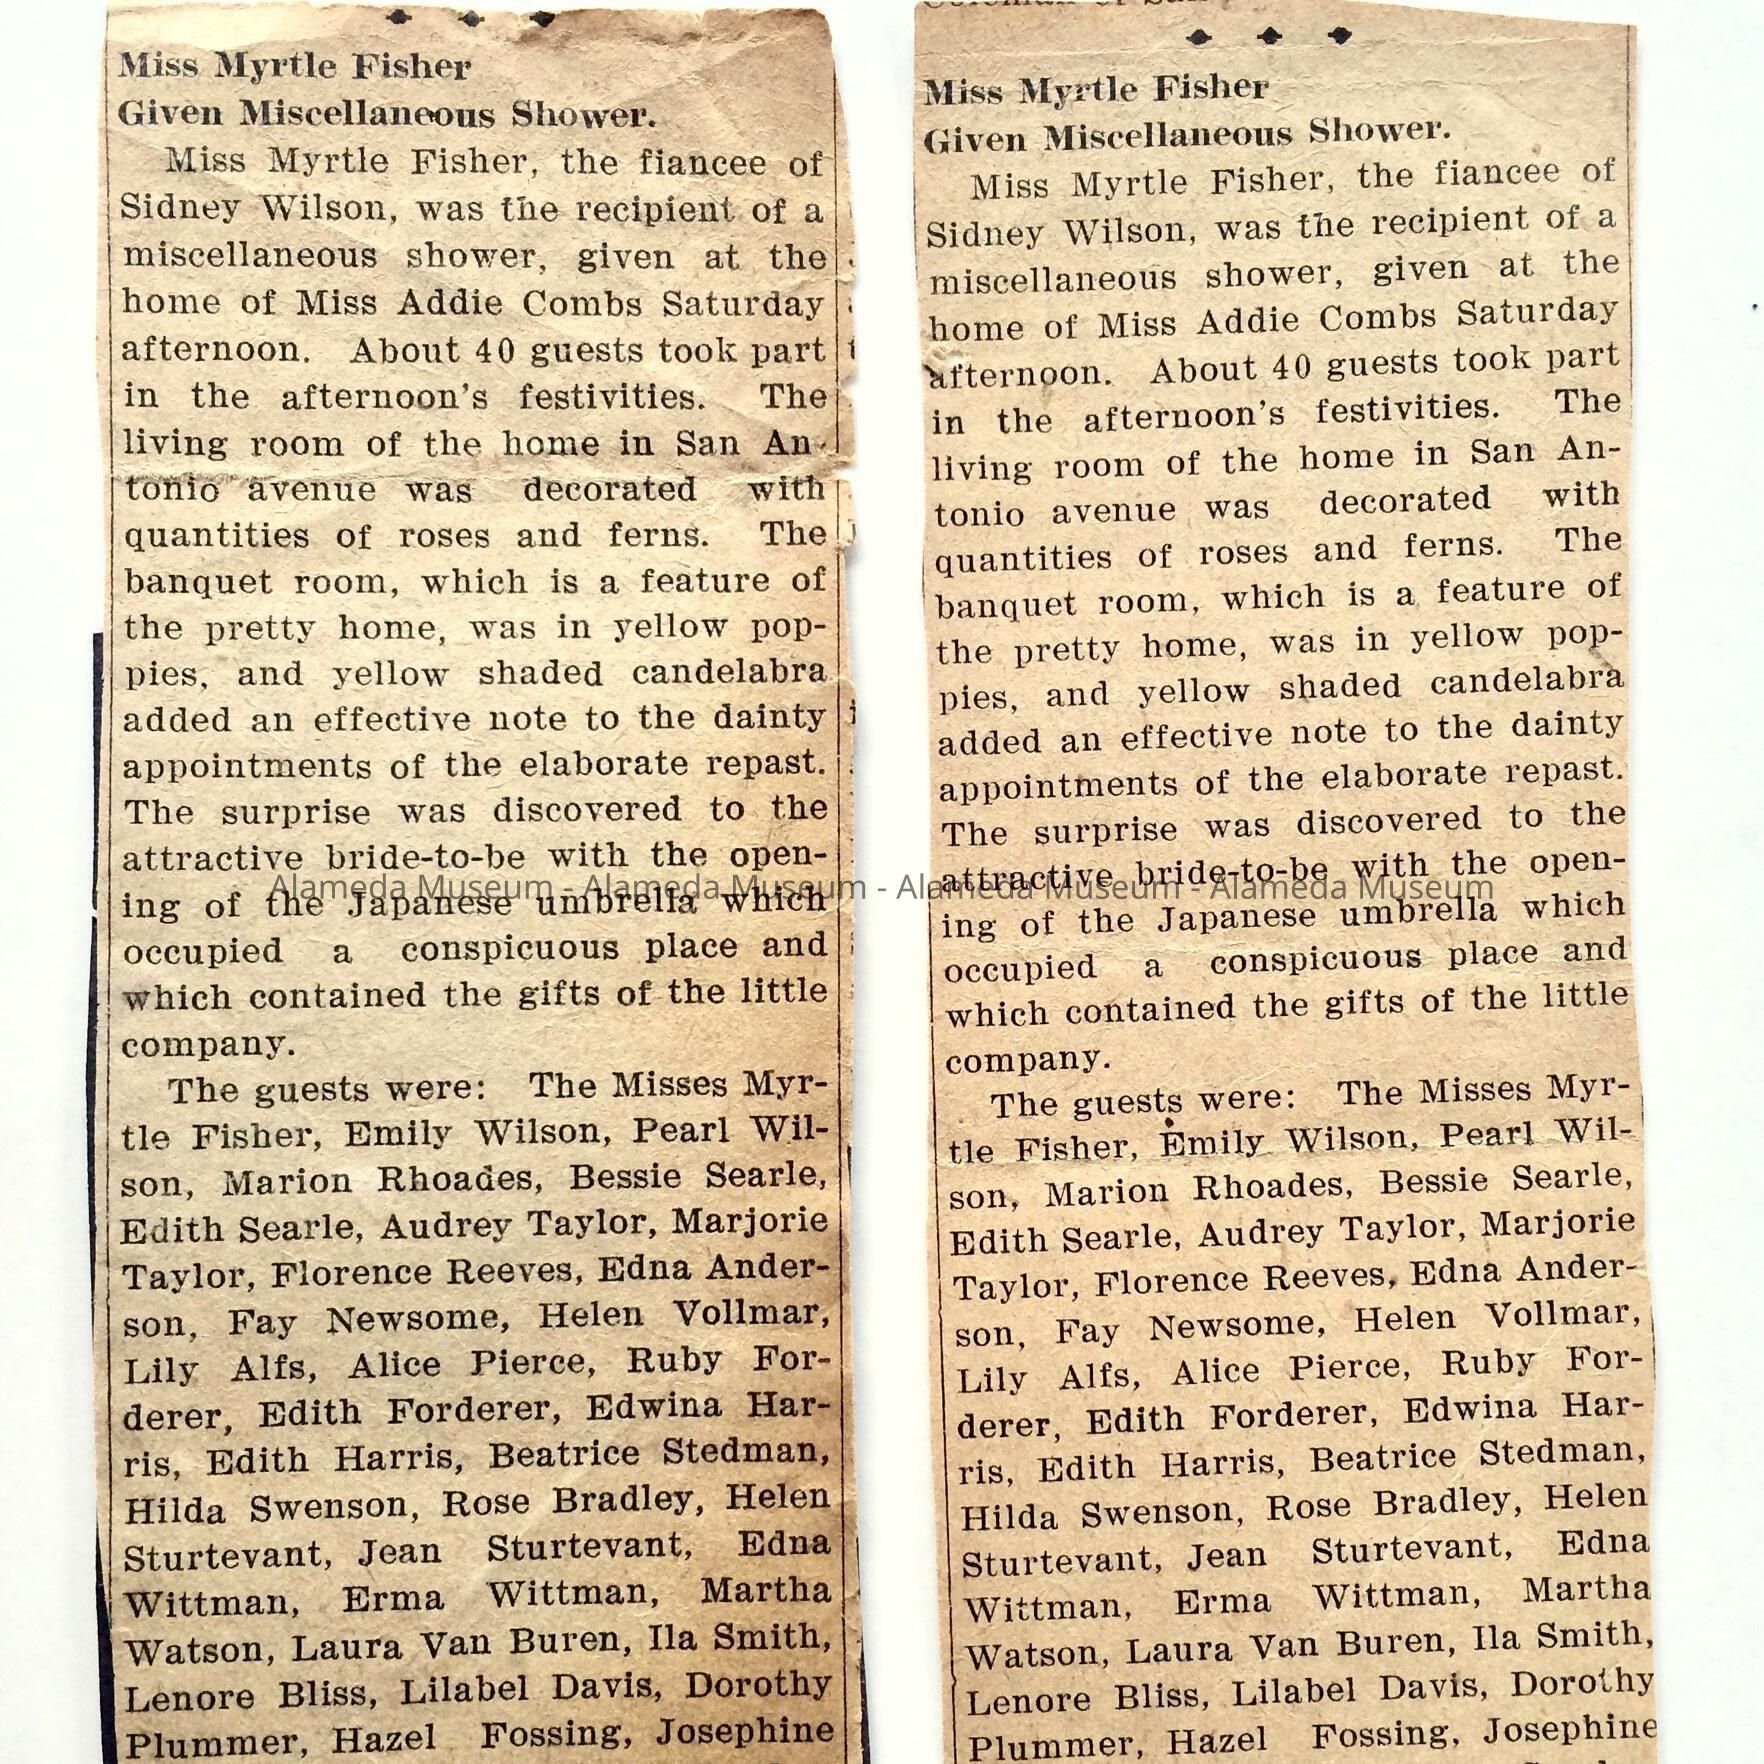 Miss Myrtle Fisher
Given Miscellaneous Shower.
Miss Myrtle Fisher, the fiancee of
Sidney Wilson, was the recipient of a
miscellaneous shower, given at the
home of Miss Addie Combs Saturday
afternoon. About 40 guests took part
in the afternoon's festivities. The
living room of the home in San An-
tonio avenue was decorated with
quantities of roses and ferns. The
banquet room, which is a feature of
the pretty home, was in yellow pop-
pies, and yellow shaded candelabra
added an effective note to the dainty
appointments of the elaborate repast.
The surprise was discovered to the
attractive bride-to-be with the open-
ing of the Japanese umbrella which
occupied a conspicuous place and
which contained the gifts of the little
company.
The guests were: The Misses Myr-
tle Fisher, Emily Wilson, Pearl Wil-
son, Marion Rhoades, Bessie Searle,
Edith Searle, Audrey Taylor, Marjorie
Taylor, Florence Reeves, Edna Ander-
son, Fay Newsome, Helen Vollmar,
Lily Alfs, Alice Pierce, Ruby For-
derer, Edith Forderer, Edwina Har-
ris, Edith Harris, Beatrice Stedman,
Hilda Swenson, Rose Bradley, Helen
Sturtevant, Jean Sturtevant, Edna
Wittman, Erma Wittman, Martha
Watson, Laura Van Buren, Ila Smith,
Lenore Bliss, Lilabel Davis, Dorothy
Plummer, Hazel Fossing, Josephine
Miss Myrtle Fisher
Given Miscellaneous Shower.
Miss Myrtle Fisher, the fiancee of
Sidney Wilson, was the recipient of a
miscellaneous shower, given at the
home of Miss Addie Combs Saturday
afternoon. About 40 guests took part
in the afternoon's festivities. The
living room of the home in San An-
tonio avenue was decorated with
quantities of roses and ferns. The
banquet room, which is a feature of
the pretty home, was in yellow pop-
pies, and yellow shaded candelabra
added an effective note to the dainty
appointments of the elaborate repast.
The surprise was discovered to the
attractive bride-to-be with the open-
ing of the Japanese umbrella which
occupied a conspicuous place and
which contained the gifts of the little
company.
The guests were: The Misses Myr-
tle Fisher, Emily Wilson, Pearl Wil-
son, Marion Rhoades, Bessie Searle,
Edith Searle, Audrey Taylor, Marjorie
Taylor, Florence Reeves, Edna Ander-
son, Fay Newsome, Helen Vollmar,
Lily Alfs, Alice Pierce, Ruby For-
derer, Edith Forderer, Edwina Har-
ris, Edith Harris, Beatrice Stedman,
Hilda Swenson, Rose Bradley, Helen
Sturtevant, Jean Sturtevant, Edna
Wittman, Erma Wittman, Martha
Watson, Laura Van Buren, Ila Smith,
Lenore Bliss, Lilabel Davis, Dorothy
Plummer, Hazel Fossing, Josephine
Alameda Museum - Alameda Museum - Alameda Museum - Alameda Museum